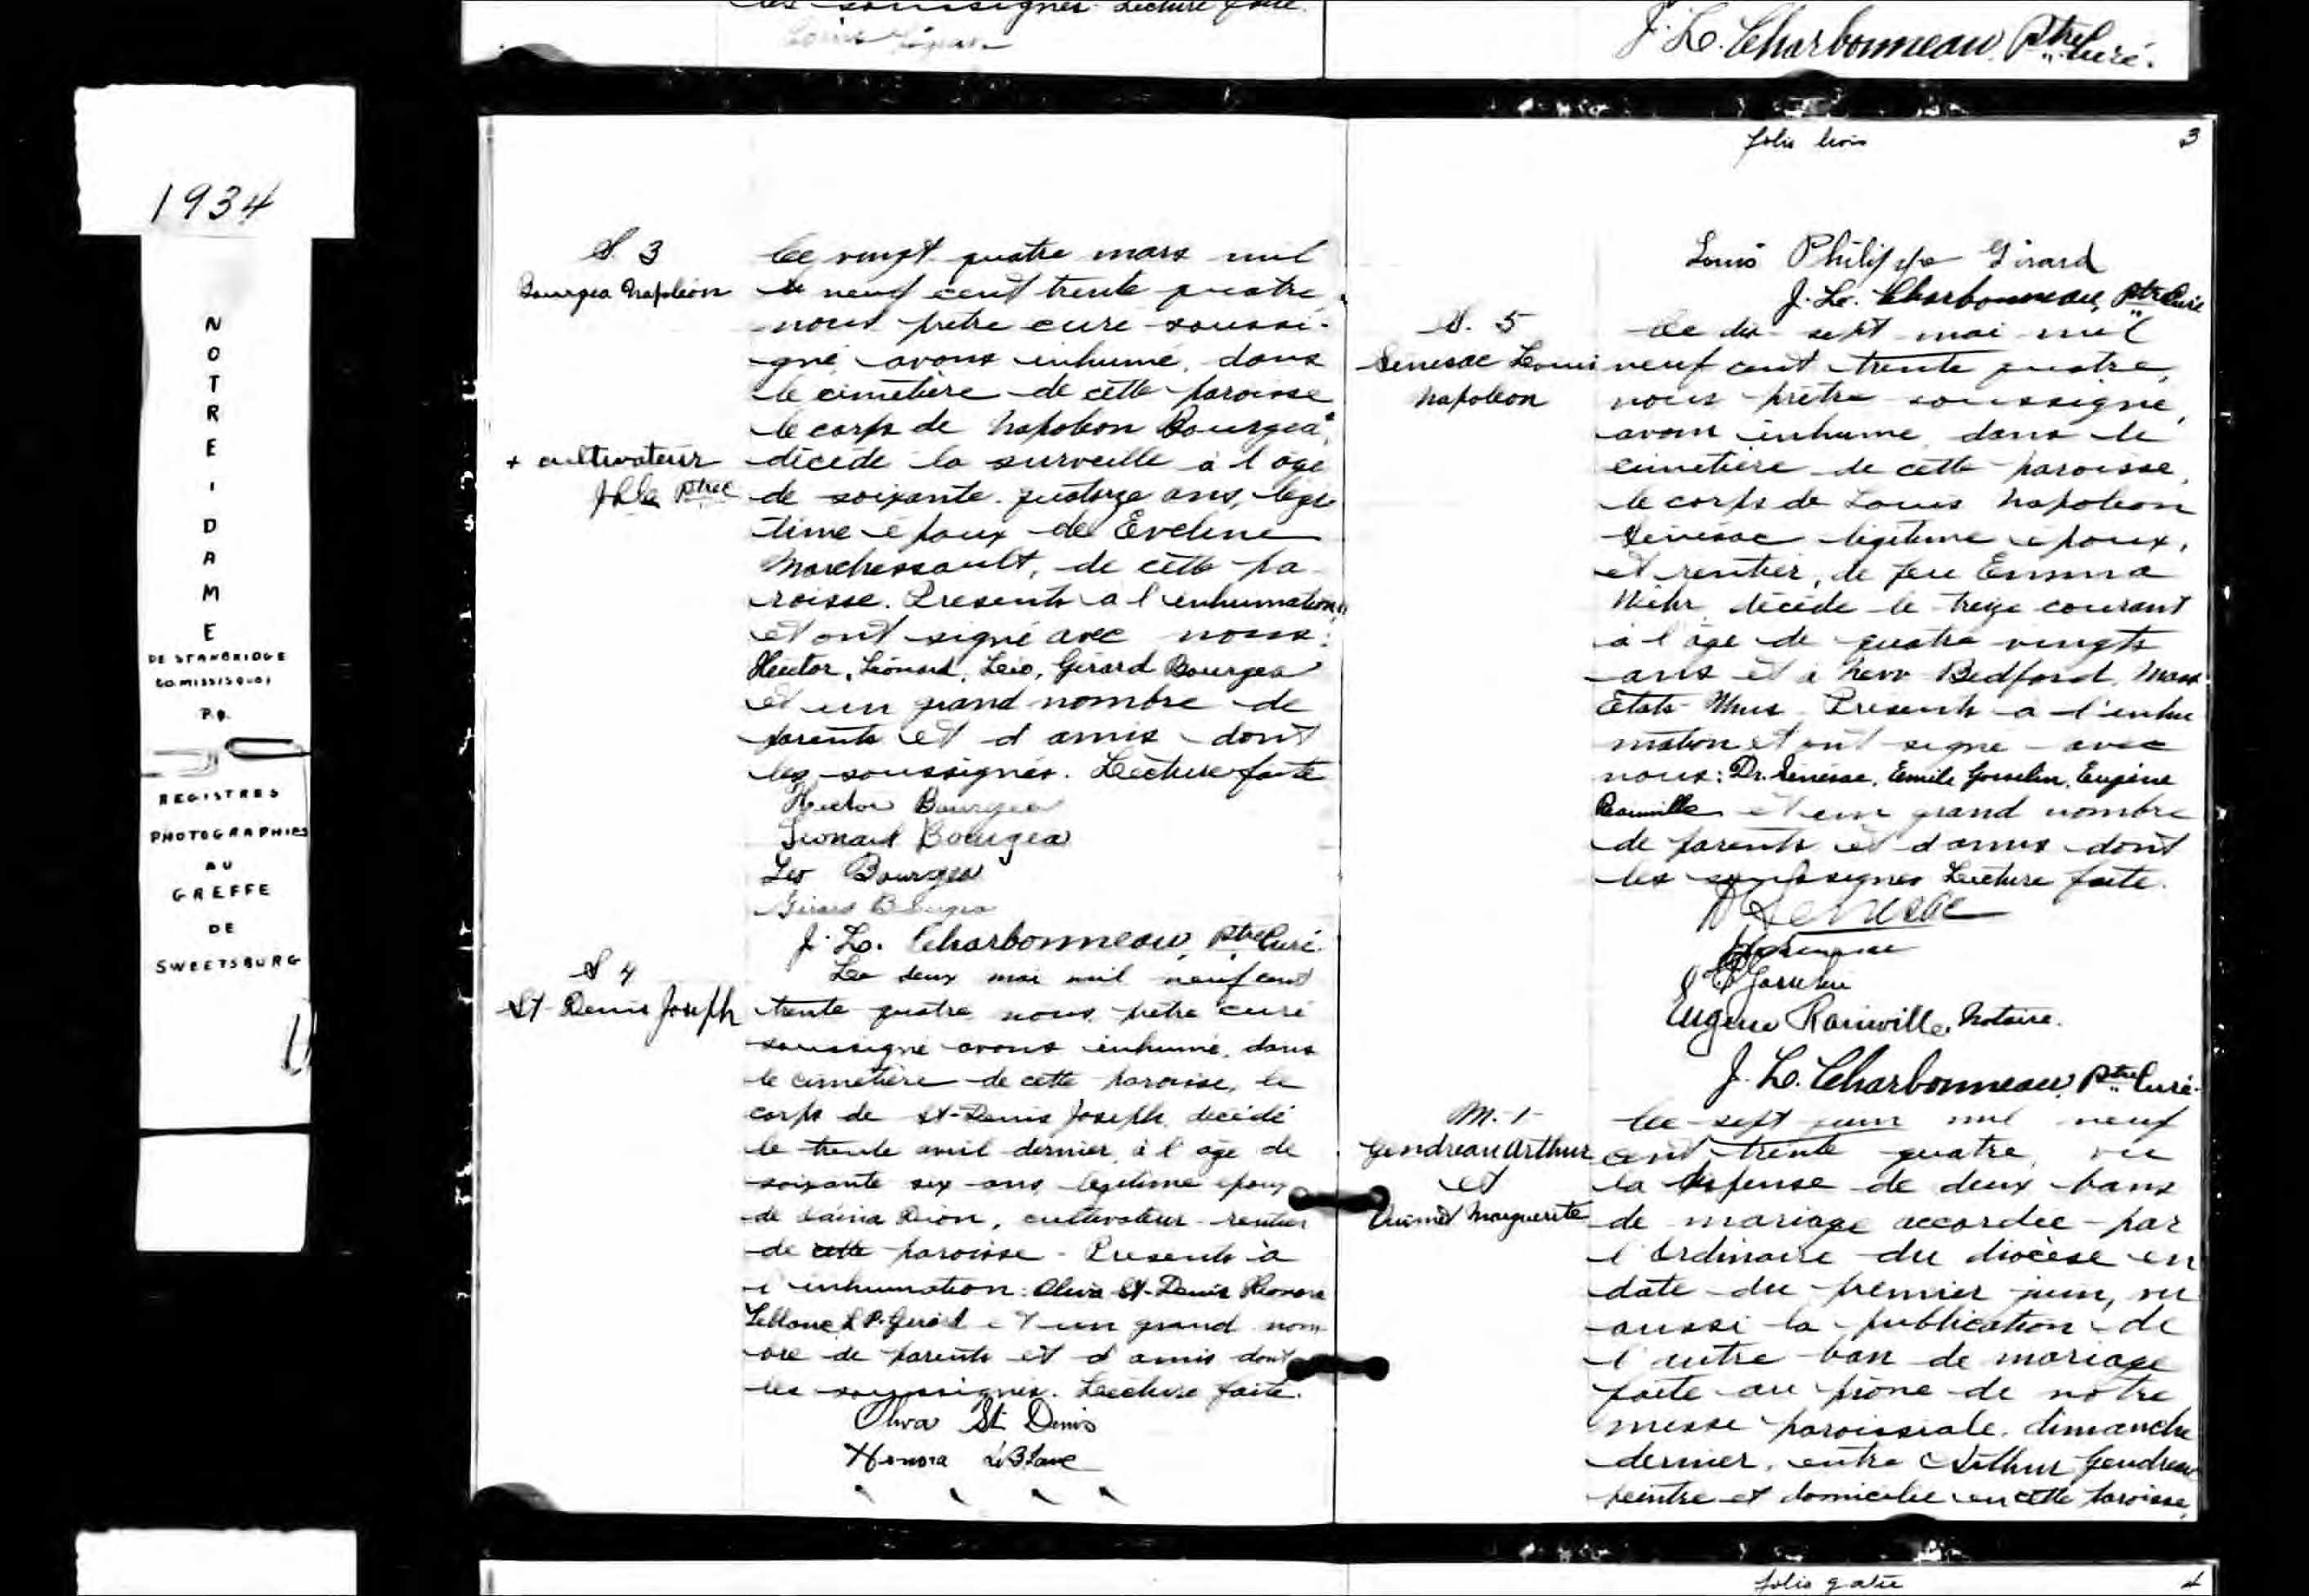 les soussignés. Lecture faite.
J. L. Charbonneau, Ptre Curé.
1934
NOTRE-DAME
DE STANBRIDGE
CO. MISSISQUOI
P.Q.
REGISTRES
PHOTOGRAPHIES
AU
GREFFE
DE
SWEETSBURG
S. 3
Bourgea Napoléon
+ cultivateur
Ce vingt quatre mars mil
neuf cent trente quatre,
nous prêtre curé soussi-
gné, avons inhumé, dans
le cimetière de cette paroisse
le corps de Napoléon Bourgea+,
décédé la surveille à l'âge
de soixante quatorze ans, légi
time époux de Eveline
Marchessault, de cette pa-
roisse. Présents à l'inhumation
et ont signé avec nous:
Hector, Léonard, Léo, Gérard Bourgea
et un grand nombre de
parents et d'amis dont
les soussignés. Lecture faite
Hector Bourgea
Léonard Bourgea
Léo Bourgea
Gérard Bourgea
J. L. Charbonneau, Ptre Curé.
S 4
St-Denis Joseph
Le deux mai mil neuf cent
trente quatre, nous, prêtre curé
soussigné avons inhumé, dans
le cimetière de cette paroisse, le
corps de St-Denis Joseph, décédé
le trente avril dernier, à l'âge de
soixante six ans, légitime époux
de Dion, cultivateur-rentier
de cette paroisse. Présents à
l'inhumation: Oliva St-Denis
Leblanc, L.P. Girard et un grand nom
bre de parents et d'amis dont
les soussignés. Lecture faite.
Oliva St Denis
Honora LeBlanc
folio trois 3
Louis Philippe Girard
J. L. Charbonneau, Ptre Curé
S. 5
Senesac Louis
Napoléon
Ce dix-sept mai mil
neuf cent trente quatre,
nous prêtre soussigné,
avons inhumé dans le
cimetière de cette paroisse,
le corps de Louis Napoléon
Sénésac légitime époux,
et rentier, de feu Emma
décédé le treize courant
à l'âge de quatre vingts
ans et à New Bedford, Mass.
États-Unis. Présents à l'inhu
mation et ont signé avec
nous: Dr. Sénésac, Emile Gosselin, Eugène
Rainville et un grand nombre
de parents et d'amis dont
les soussignés Lecture faite.
Senesac
Gosselin
Eugène Rainville, Notaire.
J. L. Charbonneau, Ptre Curé.
M. 1
Gendreau Arthur
et
Ouimet Marguerite
Ce sept juin mil neuf
cent trente quatre, vu
la dispense de deux bans
de mariage accordée par
l'Ordinaire du diocèse en
date du premier juin, vu
aussi la publication de
l'autre ban de mariage
faite au prône de notre
messe paroissiale, dimanche
dernier, entre Arthur Gendreau
peintre et domicilié en cette paroisse,
folio quatre 4